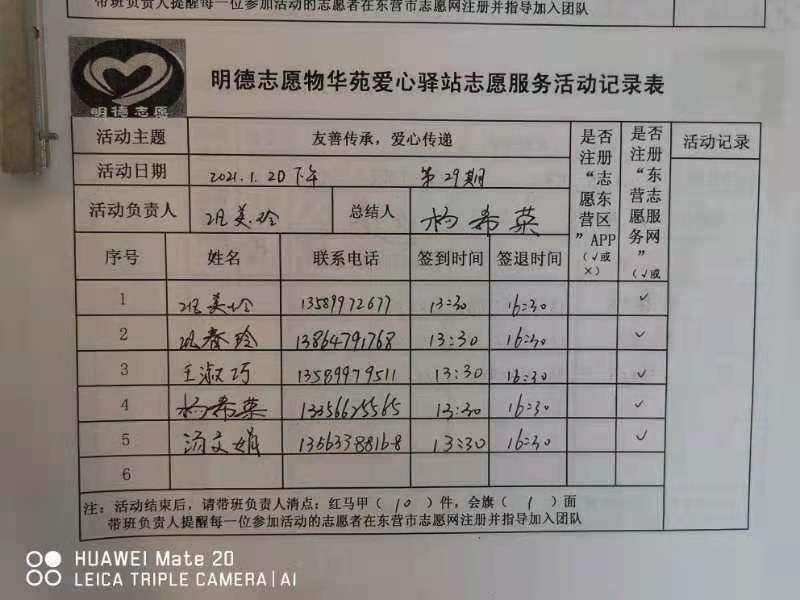 带班负责人提醒每一位参加活动的志愿者在东营市志愿网注册并指导加入团队
明德志愿
明德志愿物华苑爱心驿站志愿服务活动记录表
活动主题 友善传承，爱心传递 是否注册“志愿东营区”APP（√或×） 是否注册“东营志愿服务网”（√或 活动记录
活动日期 2021.1.20下午 第29期
活动负责人 美玲 总结人 杨希菜
序号 姓名 联系电话 签到时间 签退时间
1 美玲 13589972677 13:30 16:30 √
2 春玲 13864791768 13:30 16:30 √
3 王淑巧 13589979511 13:30 16:30 √
4 杨希菜 13:30 16:30 √
5 汤文娟 13563388168 13:30 16:30 √
6
注：活动结束后，请带班负责人清点：红马甲（10）件，会旗（1）面
带班负责人提醒每一位参加活动的志愿者在东营市志愿网注册并指导加入团队
HUAWEI Mate 20
LEICA TRIPLE CAMERA | AI